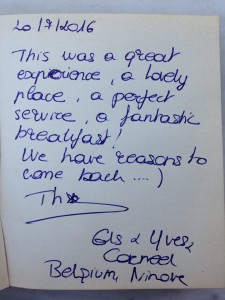 20/7/2016
This was a great
experience, a lovely
place, a perfect
service, a fantastic
breakfast!
We have reasons to
come back ....)
Gls & Yves,
Corneel
Belgium, Ninove